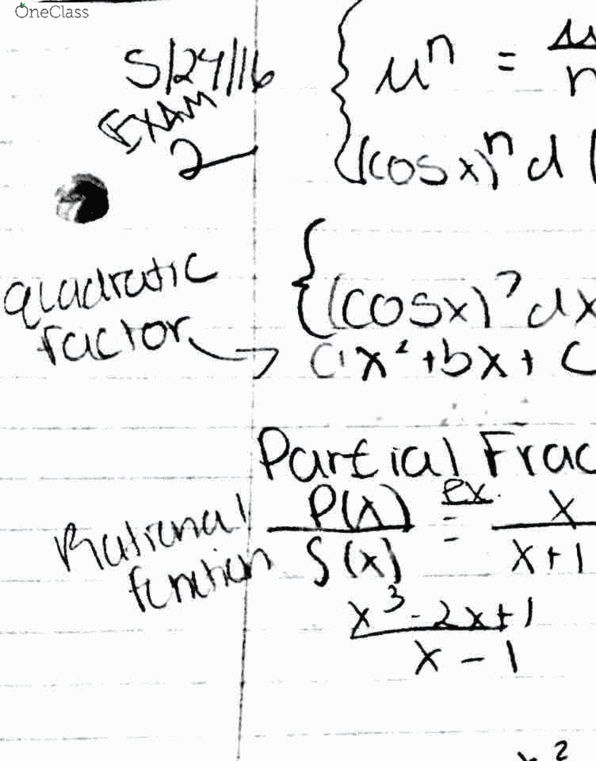 OneClass
5/24/16
EXAM
2
{ u^n = u
n
{ (cosx)^n d(
{ (cosx)^7 dx
quadratic
factor → ax²+bx+c
Partial Frac
Rational
function
P(x)/S(x) = ex. x/x+1
x³-2x+1
x-1
2